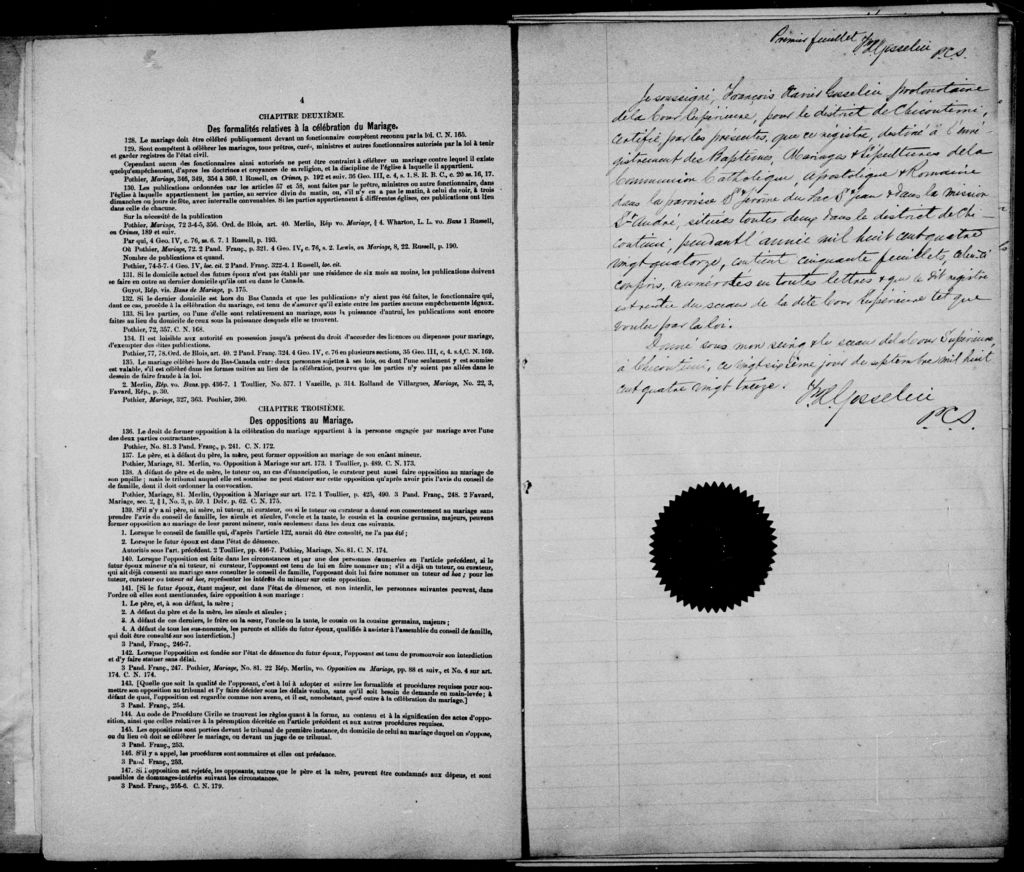 4
CHAPITRE DEUXIÈME.
Des formalités relatives à la célébration du Mariage.
128. Le mariage doit être célébré publiquement devant un fonctionnaire compétent reconnu par la loi. C. N. 165.
129. Sont compétent à célébrer les mariages, tous prêtres, curé-, ministres et autres fonctionnaires autorisés par la loi à tenir
et garder registres de l'état civil.
Cependant aucun des fonctionnaires ainsi autorisés ne peut être contraint à célébrer un mariage contre lequel il existe
quelqu'empêchement, d'après les doctrines et croyances de sa religion, et la discipline de l'église à laquelle il appartient.
Pothier, Mariage, 346, 349, 354 à 360, 1 Russell, on Crimes, p. 192 et suiv. 36 Geo. III, c. 4, s. 1. S. R. B. C., c. 20 ss. 16, 17.
130. Les publications ordonnées par les articles 57 et 58, sont faites par le prêtre, ministres ou autre fonctionnaire, dans
l'église à laquelle appartiennent les parties, au service divin du matin, ou, s'il n'y en a pas le matin, à celui du soir, à trois
dimanches ou jours de fête, avec intervalle convenables. Si les parties appartiennent à différentes églises, ces publications ont lieu
dans celle de chacune.
Sur la nécessité de la publication
Pothier, Mariage, 72 3-4-5, 356. Ord. de Blois, art. 40. Merlin, Rép vo. Mariage, § 4. Wharton, L. L. vo. Bans 1 Russell,
on Crimes, 189 et suiv.
Par qui, 4 Geo. IV, c. 76, ss. 6. 7. 1 Russell, p. 193.
Où Pothier, Mariage, 72. 2 Pand. Franç., p. 321. 4 Geo. IV, c. 76, s. 2. Lewis, on Mariage, 8, 22. Russell, p. 190.
Nombre de publications et quand.
Pothier, 74-5-7. 4 Geo. IV, loc. cit. 2 Pand. Franç. 322-4. 1 Russell, loc. cit.
131. Si le domicile actuel des futurs époux n'est pas établi par une résidence de six mois au moins, les publications doivent
se faire en outre au dernier domicile qu'ils ont eu dans le Canada.
Guyot, Rép. vis. Bans de Mariage, p. 175.
132. Si le dernier domicile est hors du Bas Canada et que les publications n'y aient pas été faites, le fonctionnaire qui,
dans ce cas, procède à la célébration du mariage, est tenu de s'assurer qu'il existe entre les parties aucuns empêchements légaux.
133. Si les parties, ou l'une d'elle sont relativement au mariage, sous la puissance d'autrui, les publications sont encore
faites au lieu du domicile de ceux sous la puissance desquels elle se trouvent.
Pothier, 72, 357. C. N. 168.
134. Il est loisible aux autorité en possession jusqu'à présent du droit d'accorder des licences ou dispenses pour mariage,
d'exempter des dites publications.
Pothier, 77, 78. Ord. de Blois, art. 40. 2 Pand Franç. 324. 4 Geo. IV, c. 76 en plusieurs sections, 35 Geo. III, c. 4. s.4, C. N. 169.
135. Le mariage célébré hors du Bas-Canada entr: deux personnes sujettes à ses lois, ou dont l'une seulement y est soumise
est valable, s'il est célébré dans les formes usitées au lieu de la célébration, pourvu que les parties n'y soient pas allées dans le
dessein de faire fraude à la loi.
2. Merlin, Rép. vo. Bans. pp. 436-7. 1 Toullier, No. 577. 1 Vazeille, p. 314. Rolland de Villargues, Mariage, No. 22, 3,
Favard, Rép., p. 30.
Pothier, Mariage, 327, 363. Pouhier, 390.
CHAPITRE TROISIÈME.
Des oppositions au Mariage.
136. Le droit de former opposition à la célébration du mariage appartient à la personne engagée par mariage avec l'une
des deux parties contractantes.
Pothier, No. 81. 3 Pand. Franç., p. 241. C. N. 172.
137. Le père, et à défaut du père, la mère, peut former opposition au mariage de son enfant mineur.
Pothier, Mariage, 81. Merlin, vo. Opposition à Mariage sur art. 173. 1 Toullier, p. 489. C. N. 173.
138. A défaut de père et de mère, le tuteur ou, au cas d'émancipation, le curateur peut aussi faire opposition au mariage de
son pupille ; mais le tribunal auquel elle est soumise ne peut statuer sur cette opposition qu'après avoir pris l'avis du conseil de
de famille, dont il doit ordonner la convocation.
Pothier, Mariage, 81. Merlin, Opposition à Mariage sur art 172. 1 Toullier, p. 425, 490. 3 Pand. Franç., 248. 2 Favard,
Mariage, sec. 2, § 1, No. 3, p. 59. 1 Delv. p. 62. C. N. 175.
139. S'il n'y a ni père, ni mère, ni tuteur, ni curateur, ou si le tuteur ou curateur a donné son consentement au mariage sans
prendre l'avis du conseil de famille, les aïeuls et aïeules, l'oncle et la tante, le cousin et la cousine germains, majeurs, peuvent
former opposition au mariage de leur parent mineur, mais seulement dans les deux cas suivants.
1. Lorsque le conseil de famille qui, d'après l'article 122, aurait dû être consulté, ne l'a pas été ;
2. Lorsque le futur époux est dans l'état de démence.
Autorités sous l'art. précédent. 2 Toullier, pp. 446-7. Pothier, Mariage, No. 81. C. N. 174.
140. Lorsque l'opposition est faite dans les circonstances et par une des personnes énumérées en l'article précédent, si le
futur époux mineur n'a ni tuteur, ni curateur, l'opposant est tenu de lui en faire nommer un ; s'il a déjà un tuteur, ou curateur,
qui ait déjà consenti au mariage sans consulter le conseil de famille, l'opposant doit lui faire nommer un tuteur ad hoc ; pour les
tuteur, curateur ou tuteur ad hoc, représenter les intérêts du mineur sur cette opposition.
141. [Si le futur époux, étant majeur, est dans l'état de démence, et non interdit, les personnes suivantes peuvent, dans
l'ordre où elles sont mentionnées, faire opposition à son mariage :
1. Le père, et, à son défaut, la mère ;
2. A défaut du père et de la mère, les aïeuls et aïeules ;
3. A défaut de ces derniers, le frère ou la sœur, l'oncle ou la tante, le cousin ou la cousine germains, majeurs ;
4. A défaut de tous les sus-nommés, les parents et alliés du futur époux, qualifiés à assister à l'assemblée du conseil de famille,
qui doit être consulté sur son interdiction.]
3 Pand, Franç., 246-7.
142. Lorsque l'opposition est fondée sur l'état de démence du futur époux, l'opposant est tenu de promouvoir son interdiction
et d'y faire statuer sans délai.
3 Pand. Franç., 247. Pothier, Mariage, No. 81. 22 Rép. Merlin, vo. Opposition au Mariage, pp. 88 et suiv., et No. 4 sur art.
174. C. N. 174.
143. [Quelle que soit la qualité de l'opposant, c'est à lui à adopter et suivre les formalités et procédures requises pour sou-
mettre son opposition au tribunal et l'y faire décider sous les délais voulus, sans qu'il soit besoin de demande en main-levée ; à
défaut de quoi, l'opposition est regardée comme non avenu, et il est, nonobstant, passé outre à la célébration du mariage.]
3 Pand. Franç., 254.
144. Au code de Procédure Civile se trouvent les règles quant à la forme, au contenu et à la signification des actes d'oppo-
sition, ainsi que celles relatives à la péremption décrétée en l'article précédent et aux autres procédures requises.
145. Les oppositions sont portées devant le tribunal de première instance, du domicile de celui au mariage duquel on s'oppose,
ou du lieu où doit se célébrer le mariage, ou devant un juge de ce tribunal.
3 Pand. Franç., 253.
146. S'il y a appel, les procédures sont sommaires et elles ont préséance.
3 Pand. Franç., 253.
147. Si l'opposition est rejetée, les opposants, autres que le père et la mère, peuvent être condamnés aux dépens, et sont
passibles de dommages-intérêts suivant les circonstances.
3 Pand. Franç., 255-6. C. N. 179.
Premier feuillet FX Gosselin
P.C.S.
Je soussigné, François Xavier Gosselin protonotaire
de la Cour Supérieure, pour le district de Chicoutimi,
certifie par les présentes, que ce registre, destiné à l'enre-
gistrement des Baptêmes, Mariages & Sépultures de la
Communion Catholique, Apostolique & Romaine
dans la paroisse St Jérôme du Lac St Jean & dans la mission
St André, situées toutes deux dans le district de Chi-
coutimi, pendant l'année mil huit cent quatre
vingt quatorze, contient cinquante feuillets, celui-ci
compris, numérotés en toutes lettres & que ce dit registre
est revêtu du sceau de la dite Cour Supérieure tel que
voulu par la loi.
Donné sous mon seing & le sceau de la Cour Supérieure,
à Chicoutimi, ce vingt sixième jour de septembre mil huit
cent quatre vingt treize.
FX Gosselin
P.C.S.